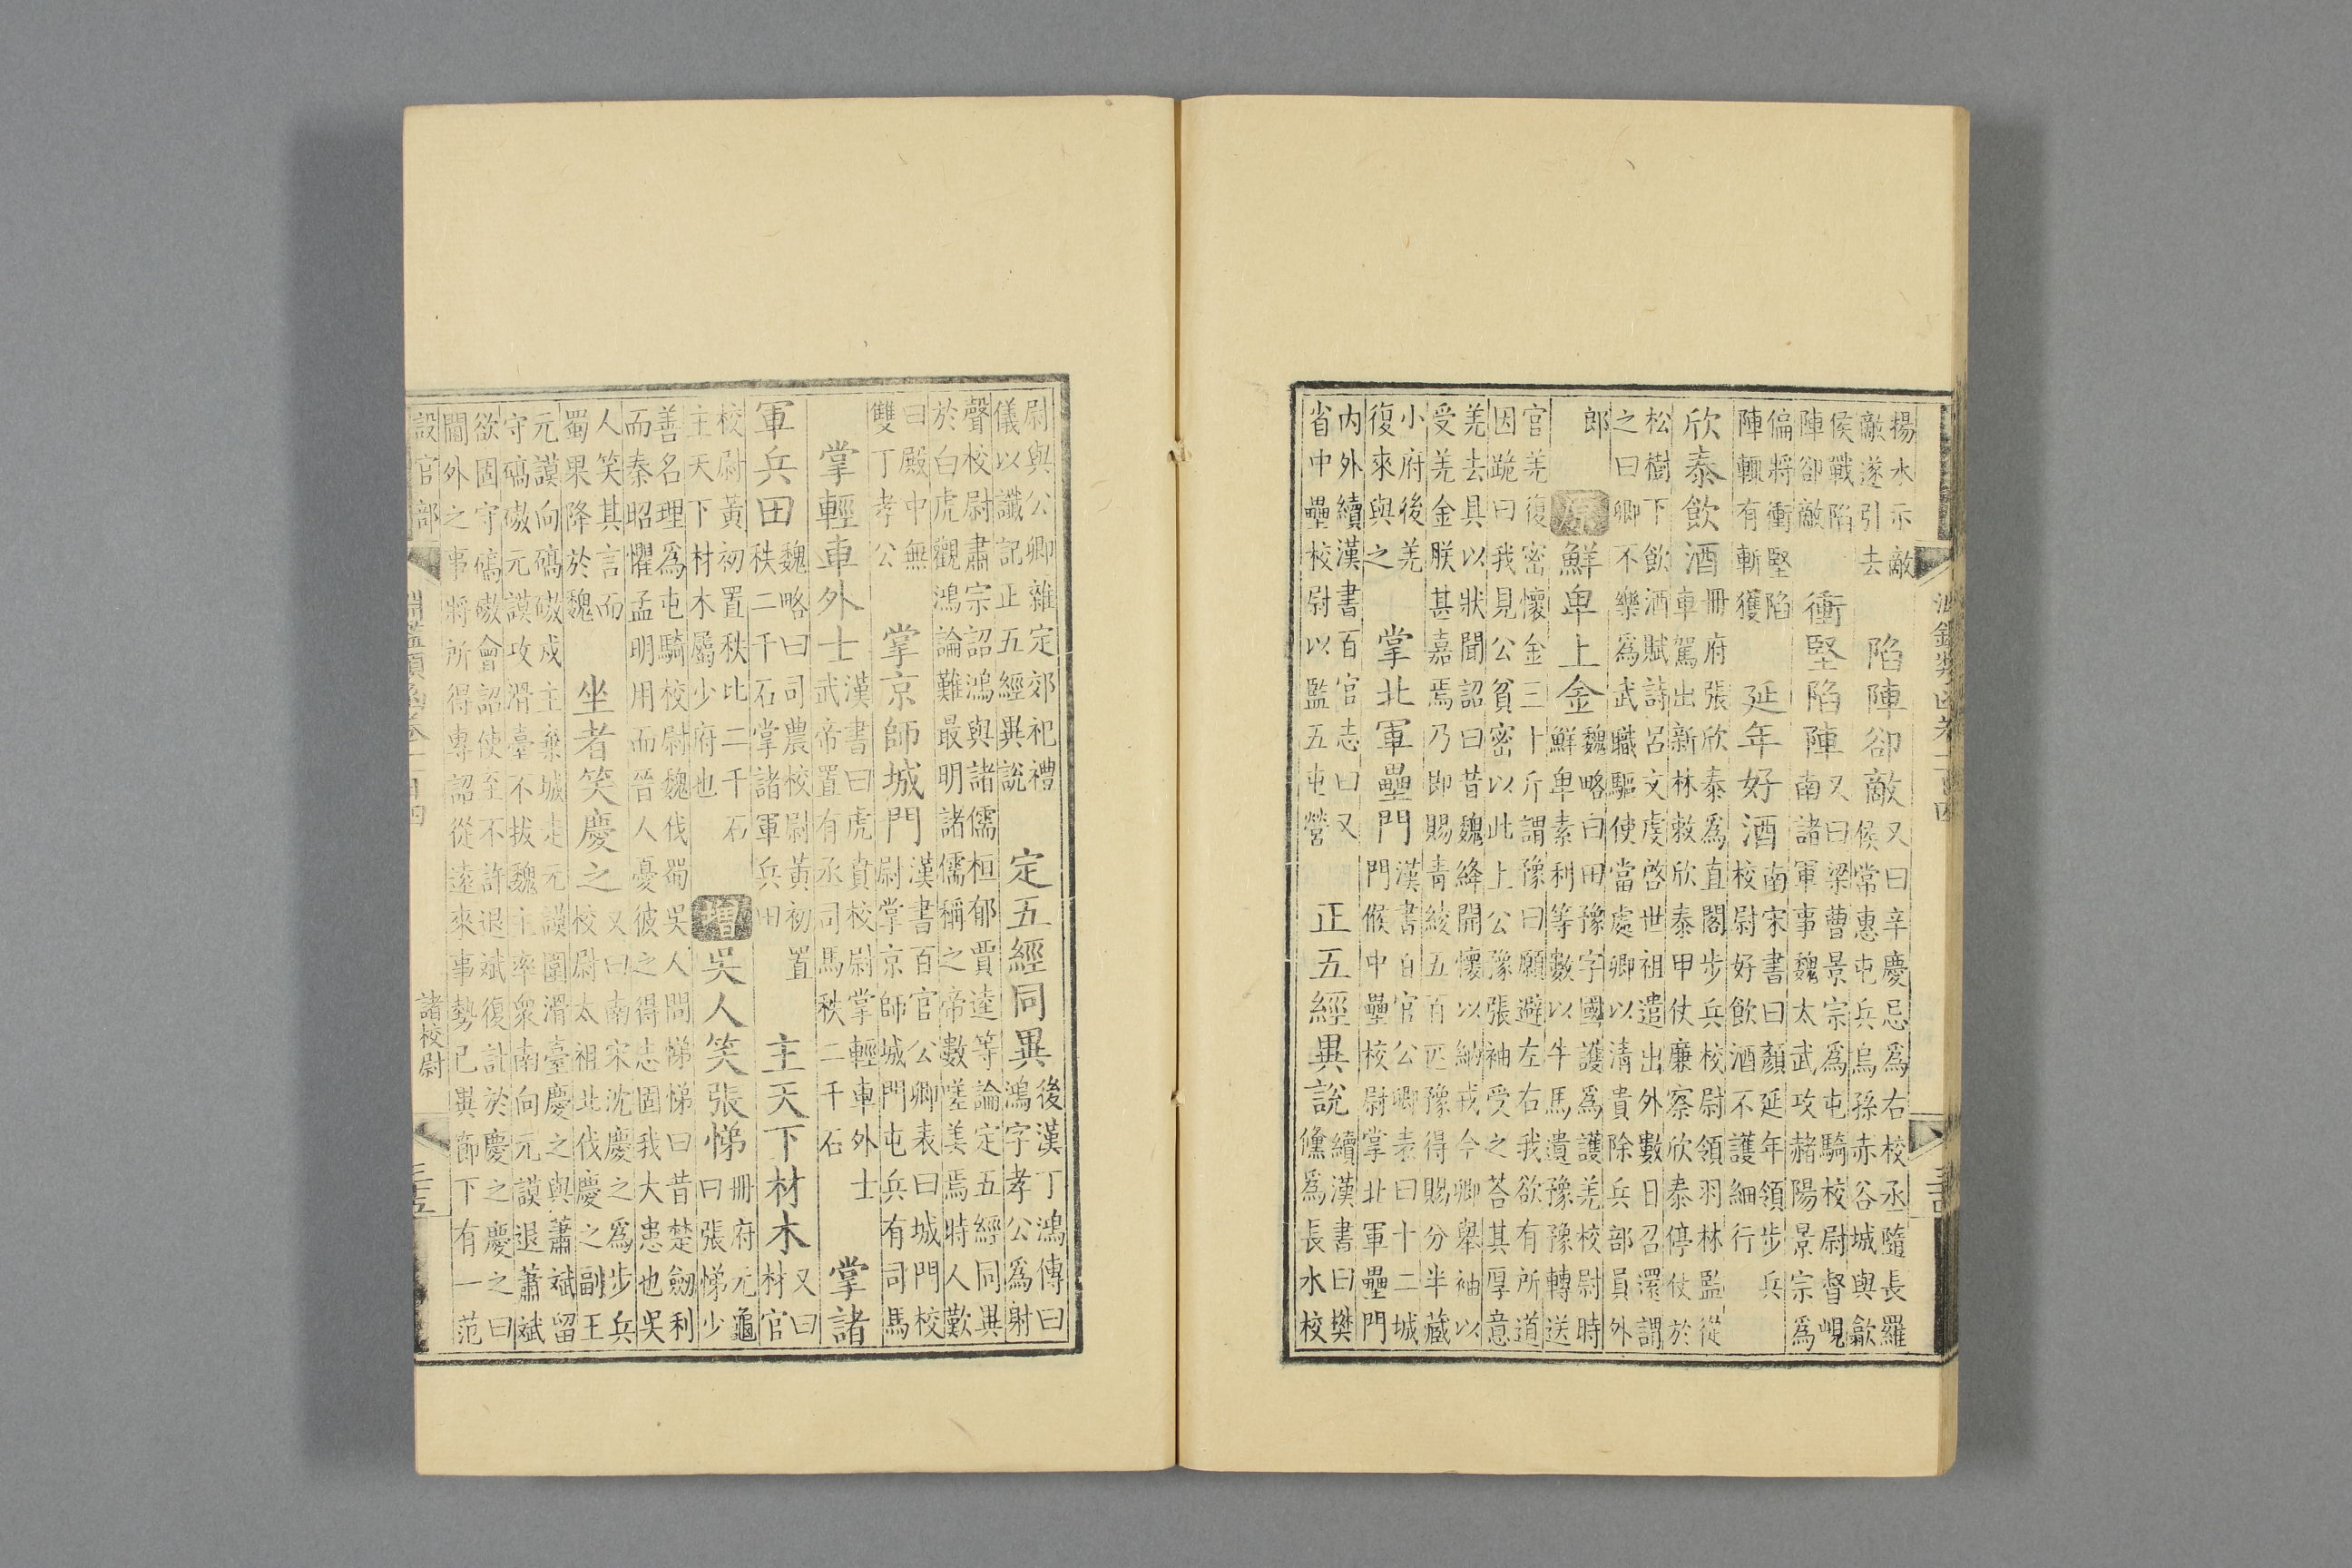 揚水示敵
敵遂引去
陷陣卻敵
又曰辛慶忌為右校丞隨長羅
侯常惠屯兵烏孫赤谷城與歙
侯戰陷
陣卻敵
衝堅陷陣
又曰梁曹景宗為屯騎校尉督峴
南諸軍事魏太武攻赭陽景宗為
偏將衝堅陷
陣輒有斬獲
延年好酒
南宋書曰顏延年領步兵
校尉好飲酒不護細行
欣泰飲酒
冊府張欣泰為直閣步兵校尉領羽林監從
車駕出新林敕欣泰甲仗廉察欣泰停仗於
松樹下飲酒賦詩呂文度啓世祖遣出外數日召還謂
之曰卿不樂為武職驅使當處卿以清貴除兵部員外
郎
原
鮮卑上金
魏略曰田豫字國護為護羌校尉時
鮮卑素利等數以牛馬遺豫豫轉送
官羌復密懷金三十斤謂豫曰願避左右我欲有所道
因跪曰我見公貧密以此上公豫張袖受之荅其厚意
羌去具以狀聞詔曰昔魏絳開懷以納戎今卿舉袖以
受羌金朕甚嘉焉乃即賜青綾五百匹豫得賜分半藏
小府後羌
復來與之
掌北軍壘門
漢書百官公卿表曰十二城
門候中壘校尉掌北軍壘門
內外續漢書百官志曰又
省中壘校尉以監五屯營
正五經異說
續漢書曰樊
儵為長水校
尉與公卿雜定郊祀禮
儀以讖記正五經異說
定五經同異
後漢丁鴻傳曰
鴻字孝公為射
聲校尉肅宗詔鴻與諸儒桓郁賈逵等論定五經同異
於白虎觀鴻論難最明諸儒稱之帝數嗟美焉時人歎
曰殿中無
雙丁孝公
掌京師城門
漢書百官公卿表曰城門校
尉掌京師城門屯兵有司馬
掌輕車外士
漢書曰虎賁校尉掌輕車外士
武帝置有丞司馬秩二千石
掌諸
軍兵田
魏略曰司農校尉黃初置
秩二千石掌諸軍兵田
主天下材木
又曰
材官
校尉黃初置秩比二千石
主天下材木屬少府也
增
吳人笑張悌
冊府元龜
曰張悌少
善名理為屯騎校尉魏伐蜀吳人問悌悌曰昔楚劒利
而秦昭懼孟明用而晉人憂彼之得志固我大患也吳
人笑其言而
蜀果降於魏
坐者笑慶之
又曰南宋沈慶之為步兵
校尉太祖北伐慶之副王
元謨向碻磝戍主棄城走元謨圍滑臺慶之與蕭斌留
守碻磝元謨攻滑臺不拔魏主率衆南向元謨退蕭斌
欲固守碻磝會詔使至不許退斌復計於慶之慶之曰
閫外之事將所得專詔從遠來事勢已異節下有一范
設官部
淵鑑類函卷一百四
諸校尉
三十五